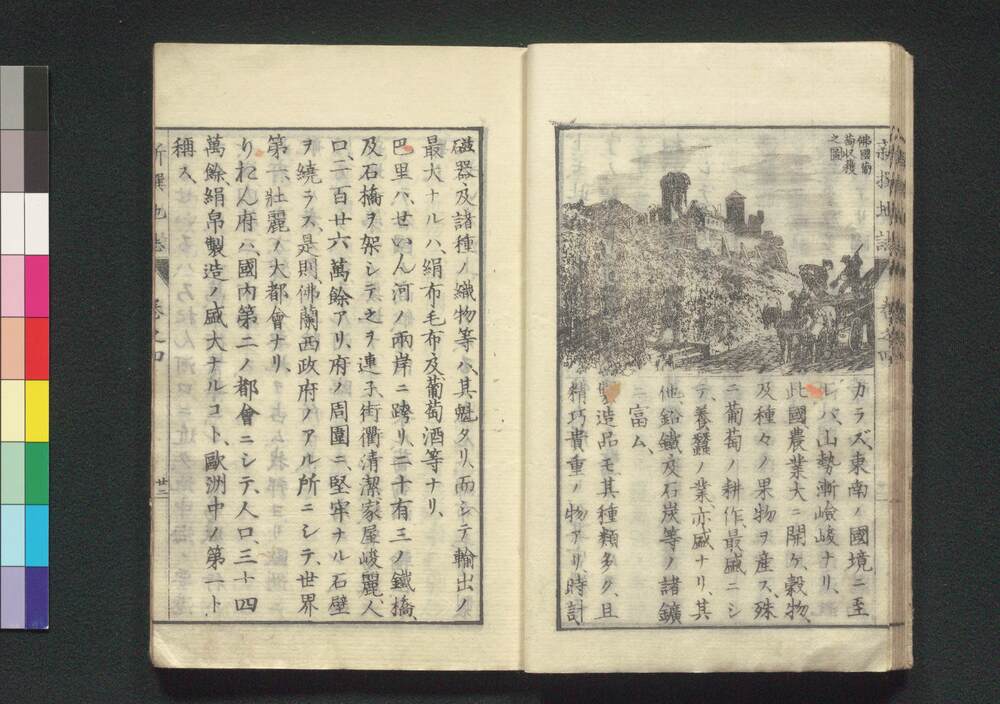 佛國葡
萄収穫
之圖
カラズ、東南ノ國境ニ至
レバ、山勢漸嶮峻ナリ、
此國農業大ニ開ケ、穀物、
及種々ノ果物ヲ産ス、殊
ニ葡萄ノ耕作、最盛ニシ
テ、養蠶ノ業亦盛ナリ、其
他鉛鐵及石炭等ノ諸鑛
ニ富ム、
造品モ其種類多ク、且
精巧貴重ノ物アリ、時計、
磁器及諸種ノ織物等ハ其魁タリ、而シテ輸出ノ
最大ナルハ、絹布毛布及葡萄酒等ナリ、
巴里ハ、せいん河ノ兩岸ニ跨リ、二十有三ノ鐵橋、
及石橋ヲ架シテ之ヲ連ネ、街衢清潔家屋峻麗、人
口、二百廿六萬餘アリ、府ノ周圍ニ、堅牢ナル石壁
ヲ繞ラス、是則佛蘭西政府ノアル所ニシテ、世界
第一壯麗ノ大都會ナリ、
りおん府ハ、國内第二ノ都會ニシテ、人口、三十四
萬餘、絹帛製造ノ盛大ナルコト、歐洲中ノ第一ト
稱ス、
新撰地誌 卷之四 廿二